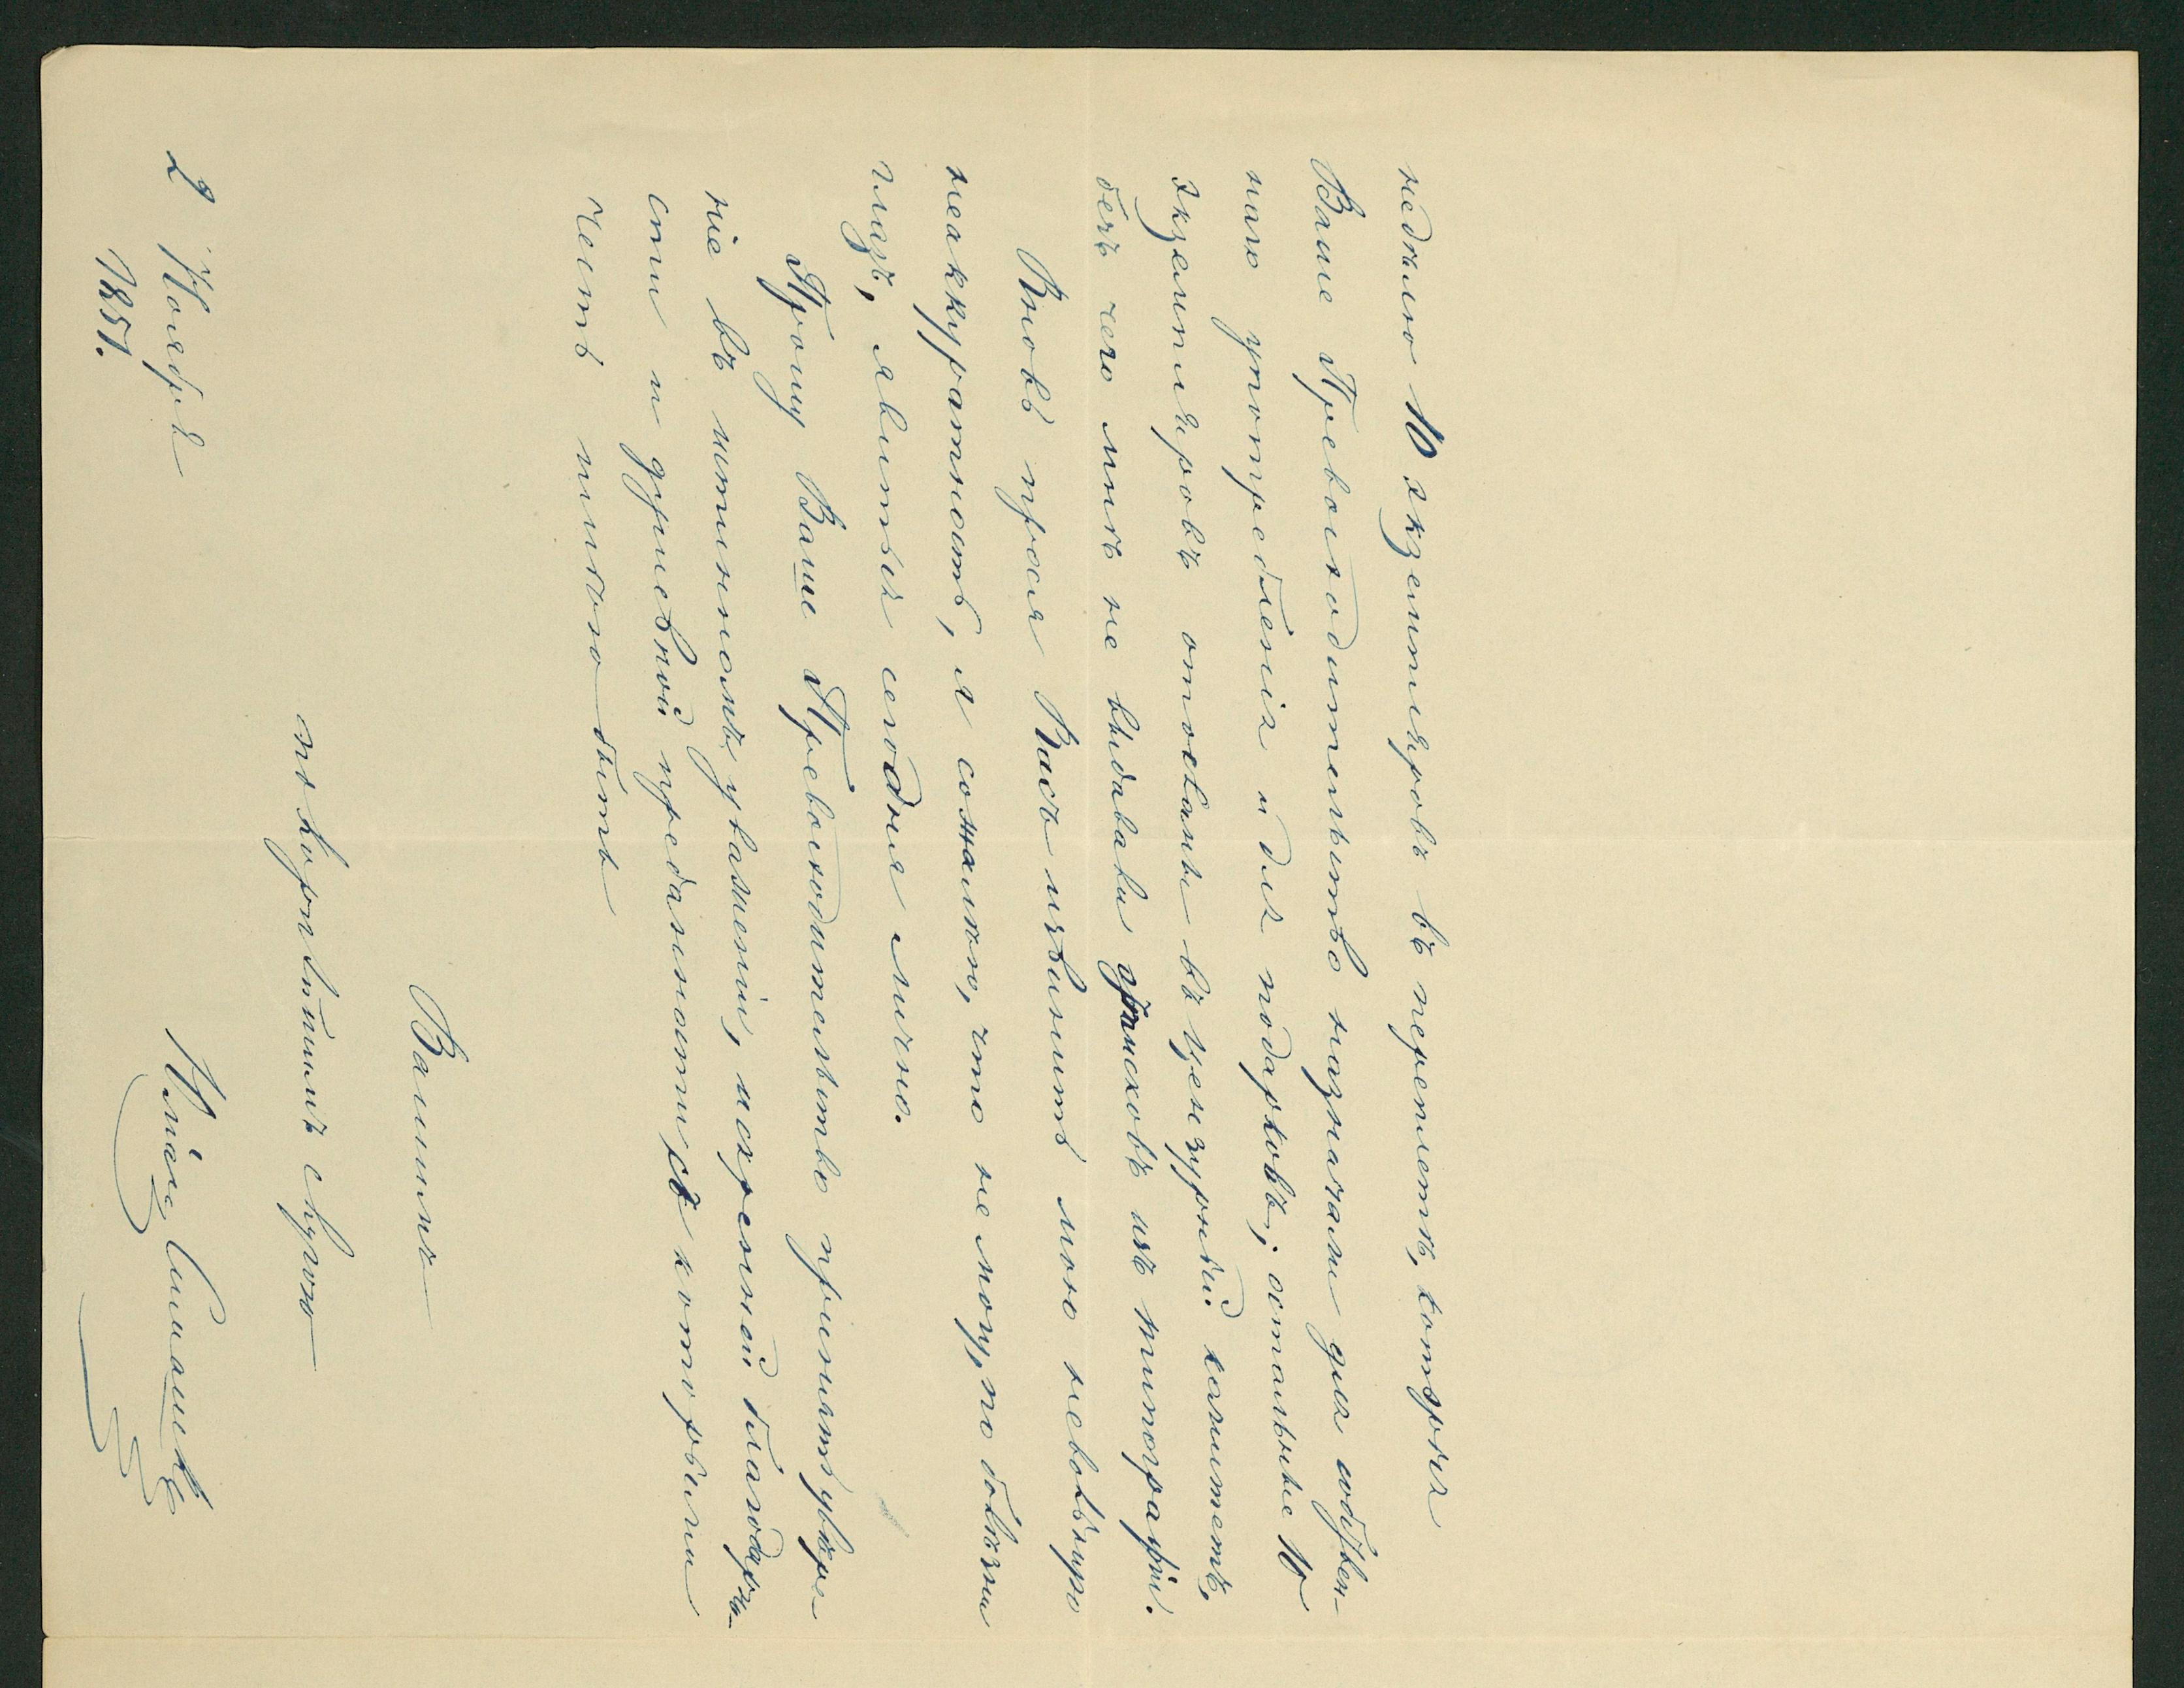 недѣлю 10 экземпляровъ въ переплетѣ, которыя
Ваше Превосходительство назначали для собствен-
наго употребленія и для подарковъ; остальные 10
экземпляровъ отосланы въ Цензурный комитетъ,
безъ чего мнѣ не выдавали изъ типографіи.
Вновь прося Васъ извинить мою невольную
неаккуратность, я сожалѣю, что не могу, по болѣзни
глазъ, явиться сегодня лично.
Прошу Ваше Превосходительство принять увѣре-
ніе въ истинномъ уваженіи, искренней благодарно-
сти и душевной преданности, съ которыми
честь имѣю быть
Вашимъ
покорнѣйшимъ слугою
2 Ноября
1851.